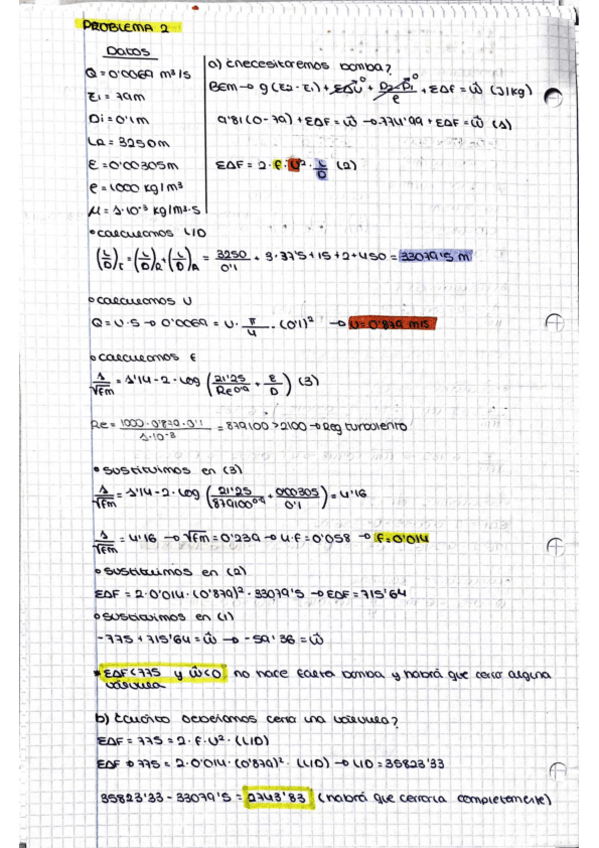 PROBLEMA 2
Datos
Q = 0'0069 m³/s
z₁ = 79m
Di = 0'1 m
LR = 3250m
ε = 0'00305m
ρ = 1000 kg/m³
μ = 1·10⁻³ kg/m²·s
a) ¿necesitaremos bomba?
BEM → g(z₂ - z₁) + ΣΔU⁰ + P₂-P₁/ρ⁰ + ΣΔF = Ŵ (J/kg)
9'81(0 - 79) + ΣΔF = Ŵ → 0-774'99 + ΣΔF = Ŵ (1)
ΣΔF = 2 · f · U² · L/D (2)
• calculamos L/D
(L/D)t = (L/D)R + (L/D)A = 3250/0'1 + 3·37'5 + 15 + 2 + 450 = 33079'5 m
• calculamos U
Q = U · S → 0'0069 = U · π/4 · (0'1)² → U = 0'879 m/s
• calculamos f
1/√fm = 1'14 - 2 · log (21'25/Re⁰'⁹ + ε/D) (3)
Re = 1000 · 0'879 · 0'1 / 1·10⁻³ = 879100 > 2100 → Reg turbulento
• sustituimos en (3)
1/√fm = 1'14 - 2 · log (21'25/879100⁰'⁹ + 0'00305/0'1) = 4'16
1/√fm = 4'16 → √fm = 0'239 → 4·f = 0'058 → f = 0'014
• sustituimos en (2)
ΣΔF = 2 · 0'014 · (0'879)² · 33079'5 → ΣΔF = 715'64
• sustituimos en (1)
-775 + 715'64 = Ŵ → -59'36 = Ŵ
* ΣΔF < 775 y Ŵ < 0 no hace falta bomba y habrá que cerrar alguna
válvula
b) ¿cuánto deberíamos cerrar una válvula?
ΣΔF = 775 = 2 · f · U² · (L/D)
ΣΔF → 775 = 2 · 0'014 · (0'879)² · (L/D) → L/D = 35823'33
35823'33 - 33079'5 = 2743'83 (habrá que cerrarla completamente)